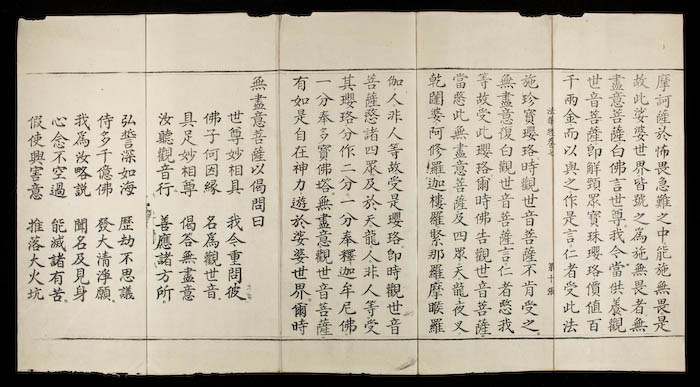 摩訶薩於怖畏急難之中能施無畏是
故此娑婆世界皆號之為施無畏者無
盡意菩薩白佛言世尊我今當供養觀
世音菩薩即解頸眾寶珠瓔珞價值百
千兩金而以與之作是言仁者受此法
第十張
施珍寶瓔珞時觀世音菩薩不肯受之
無盡意復白觀世音菩薩言仁者愍我
等故受此瓔珞爾時佛告觀世音菩薩
當愍此無盡意菩薩及四眾天龍夜叉
乾闥婆阿修羅迦樓羅緊那羅摩睺羅
伽人非人等故受是瓔珞即時觀世音
菩薩愍諸四眾及於天龍人非人等受
其瓔珞分作二分一分奉釋迦牟尼佛
一分奉多寶佛塔無盡意觀世音菩薩
有如是自在神力遊於娑婆世界爾時
無盡意菩薩以偈問曰
世尊妙相具 我今重問彼
佛子何因緣 名為觀世音
具足妙相尊 偈答無盡意
汝聽觀音行 善應諸方所
弘誓深如海 歷劫不思議
侍多千億佛 發大清淨願
我為汝略說 聞名及見身
心念不空過 能滅諸有苦
假使興害意 推落大火坑